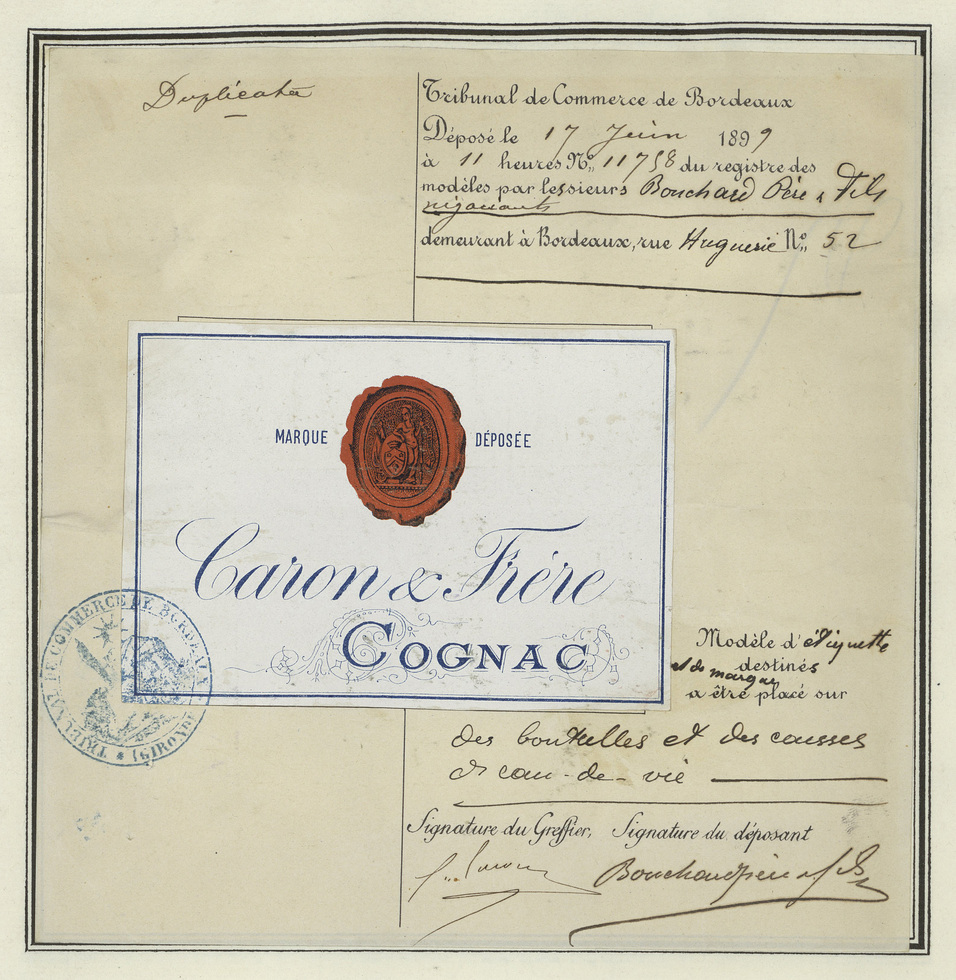 Duplicata
Tribunal de Commerce de Bordeaux
Déposé le 17 Juin 1899
à 11 heures No,, 11758 du registre des
modèles par lessieurs Bouchard Père & Fils
négociants
demeurant à Bordeaux, rue Huguerie No,, 52
MARQUE DÉPOSÉE
Caron & Frère
COGNAC
TRIBUNAL DE COMMERCE DE BORDEAUX
* (GIRONDE
Modèle d'étiquette
destinés
et de marque
a être placé sur
des bouteilles et des caisses
d'eau-de-vie
Signature du Greffier, Signature du déposant
Bouchard Père & Fils